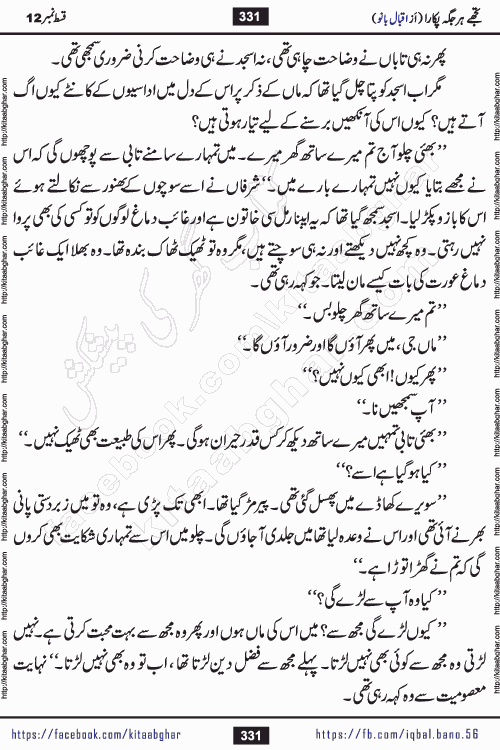 تجھے ہر جگہ پکارا (از اقبال بانو) 331 قسط نمبر 12
پھر نہ ہی تاباں نے وضاحت چاہی تھی، نہ اسجد نے ہی وضاحت کرنی ضروری سمجھی تھی۔
مگر اب اسجد کو پتا چل گیا تھا کہ ماں کے ذکر پر اس کے دل میں اداسیوں کے کانٹے کیوں اگ
آتے ہیں؟ کیوں اس کی آنکھیں برسنے کے لیے تیار ہوتی ہیں؟
’’بھئی چلو آج تم میرے ساتھ گھر میرے۔ میں تمہارے سامنے تابی سے پوچھوں گی کہ اس
نے مجھے بتایا کیوں نہیں تمہارے بارے میں۔‘‘ شرفاں نے اسے سوچوں کے بھنور سے نکالتے ہوئے
اس کا بازو پکڑ لیا۔ اسجد سمجھ گیا تھا کہ یہ ایبنارمل سی خاتون ہے اور غائب دماغ لوگوں کو تو کسی کی بھی پروا
نہیں رہتی۔ وہ کچھ نہیں دیکھتے اور نہ ہی سوچتے ہیں، مگر وہ تو ٹھیک ٹھاک بندہ تھا۔ وہ بھلا ایک غائب
دماغ عورت کی بات کیسے مان لیتا۔ جو کہہ رہی تھی۔
’’تم میرے ساتھ گھر چلو بس۔‘‘
’’ماں جی، میں پھر آؤں گا اور ضرور آؤں گا۔‘‘
’’پھر کیوں! ابھی کیوں نہیں؟‘‘
’’آپ سمجھیں نا۔‘‘
’’بھئی تابی تمہیں میرے ساتھ دیکھ کر کس قدر حیران ہوگی۔ پھر اس کی طبیعت بھی ٹھیک نہیں۔‘‘
’’کیا ہو گیا ہے اسے؟‘‘
’’سویرے کھاڈے میں پھسل گئی تھی۔ پیر مڑ گیا تھا۔ ابھی تک پڑی ہے، وہ تو میں زبردستی پانی
بھرنے آئی تھی اور اس نے وعدہ لیا تھا میں جلدی آ جاؤں گی۔ چلو میں اس سے تمہاری شکایت بھی کروں
گی کہ تم نے گھڑا توڑا ہے۔‘‘
’’کیا وہ آپ سے لڑے گی؟‘‘
’’کیوں لڑے گی مجھ سے؟ میں اس کی ماں ہوں اور پھر وہ مجھ سے بہت محبت کرتی ہے۔ نہیں
لڑتی وہ مجھ سے کوئی بھی نہیں لڑتا۔ پہلے مجھ سے فضل دین لڑتا تھا، اب تو وہ بھی نہیں لڑتا۔‘‘ نہایت
معصومیت سے وہ کہہ رہی تھی۔
https://facebook.com/kitaabghar 331 https://fb.com/iqbal.bano.56
http://kitaabghar.com